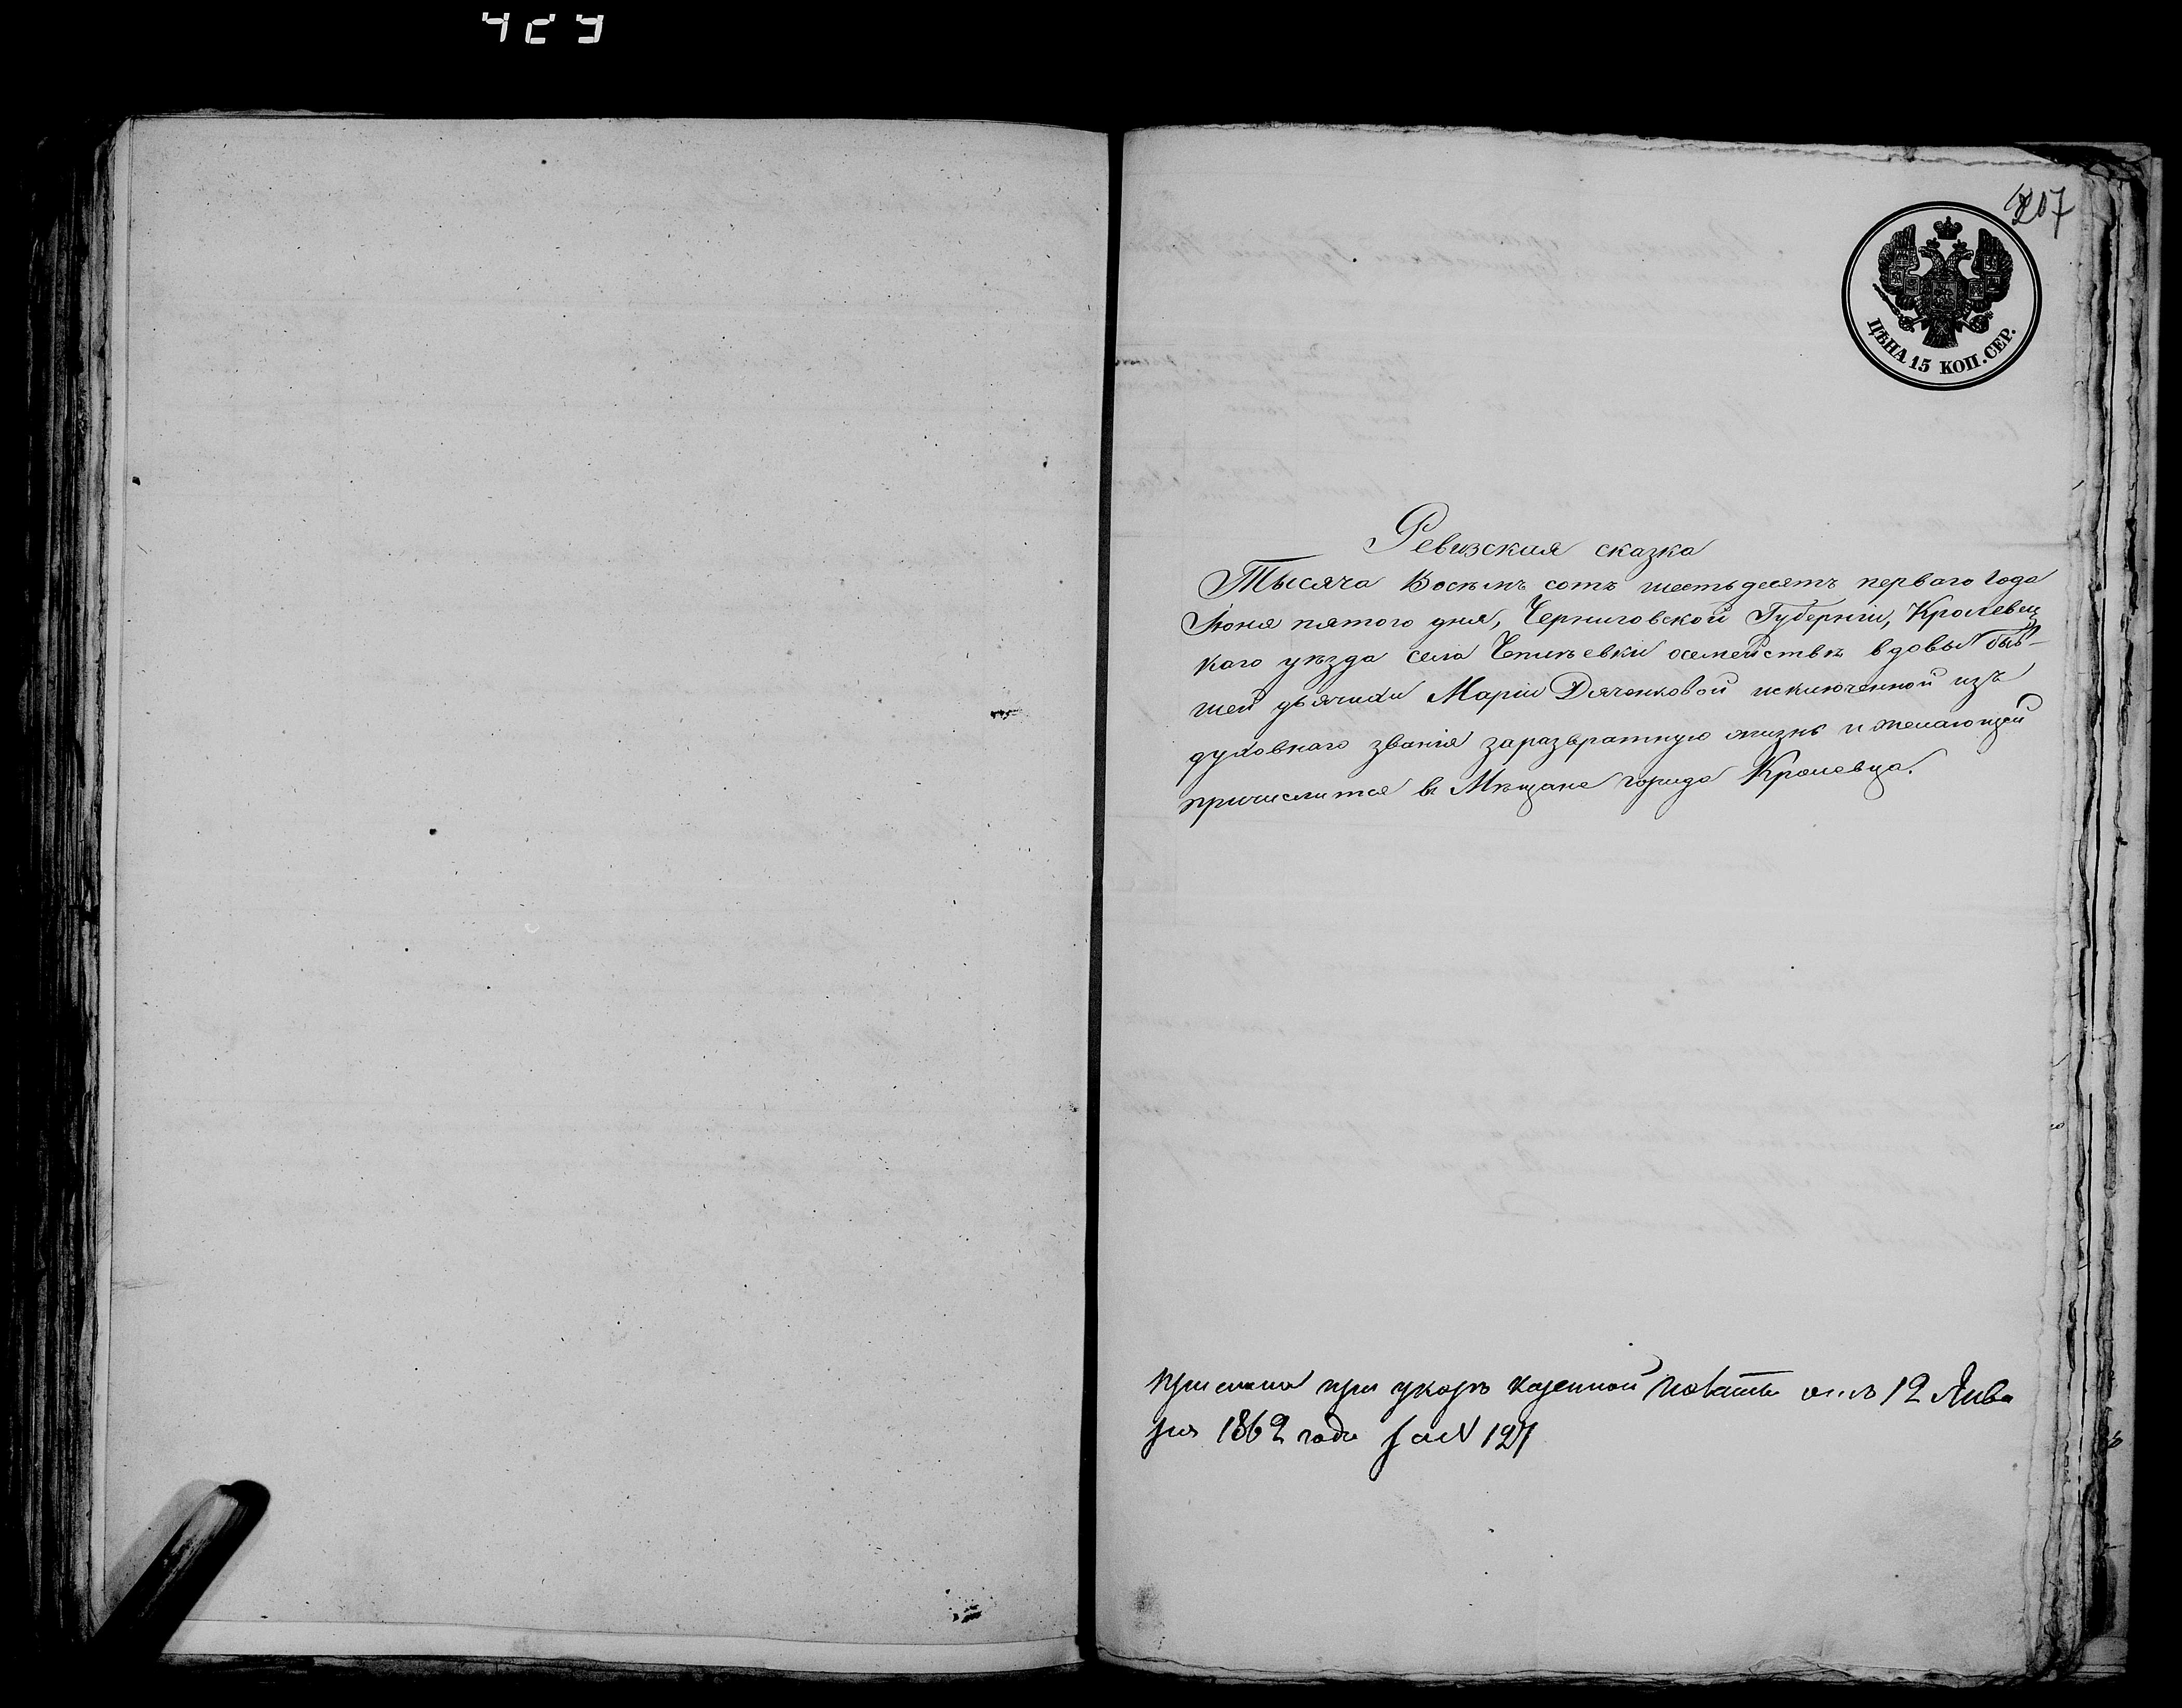 423
207
ЦѢНА 15 КОП. СЕР.
Ревизская сказка
Тысяча Восѣмъ сотъ шестьдесятъ перваго Года
Іюня пятого дня, Черниговской Губерніи, Кролевец
каго уѣзда села Чепиѣевки осемействѣ вдовы быв-
шей дьячихи Маріи Дяченковой исключенной изъ
духовнаго званія заразвратную жизнь и желающей
причислится въ Мѣщане города Кролевца.
при указѣ казенной палаты отъ 12 Янва
ря 1862 года за N 127